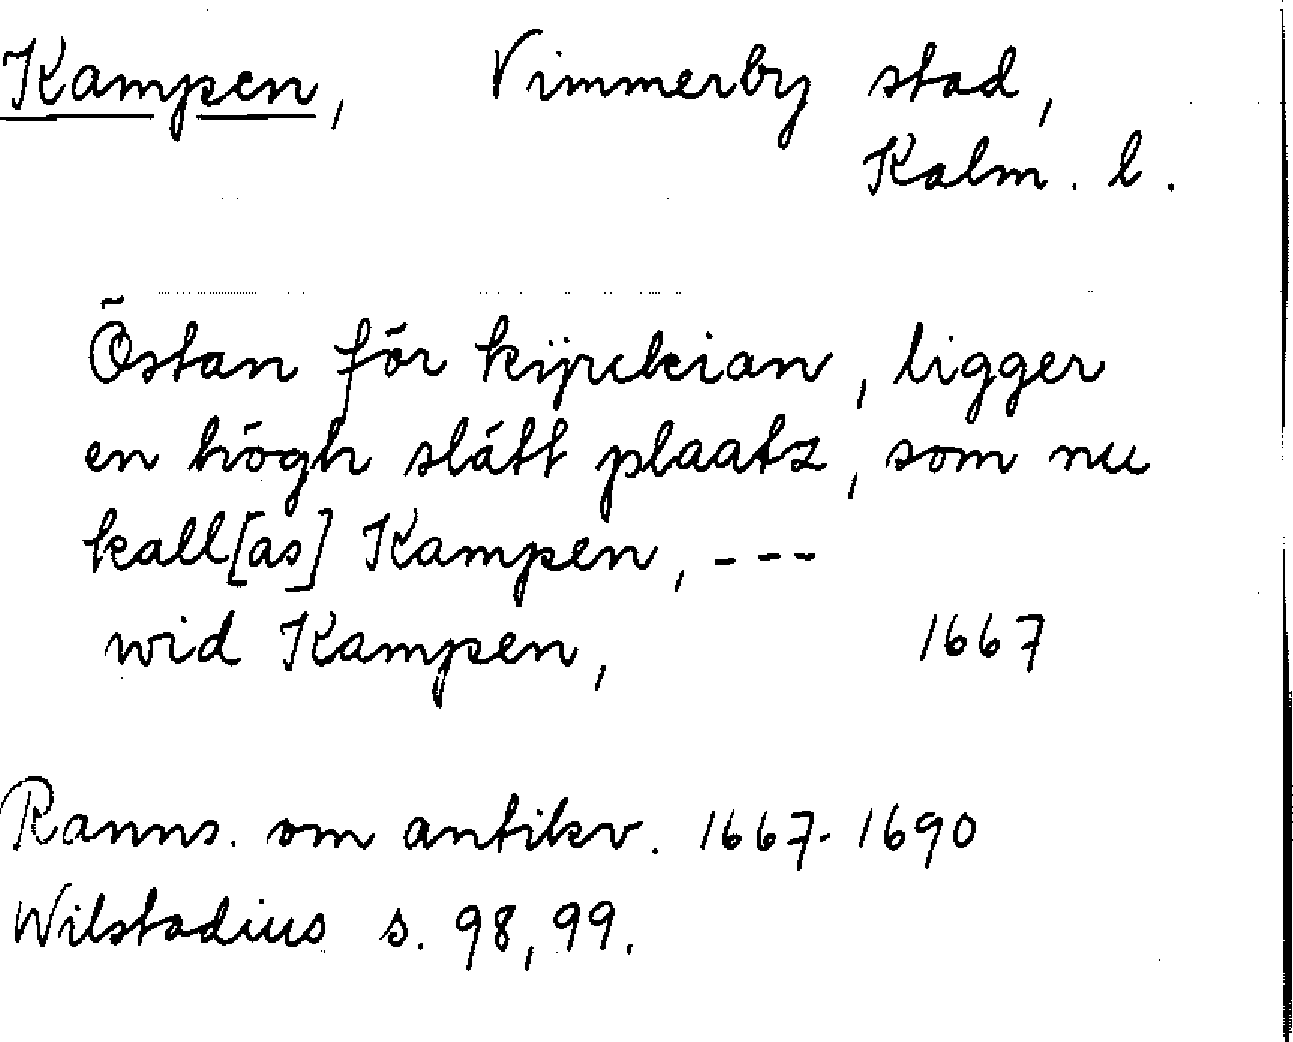 Kampen, Vimmerby stad,
Kalm. l.
Östan för kÿrckian, ligger
en högh slätt plaatz, som nu
kall[as] Kampen, ---
wid Kampen, 1667
Ranns. om antikv. 1667-1690
Wilstadius s. 98, 99.